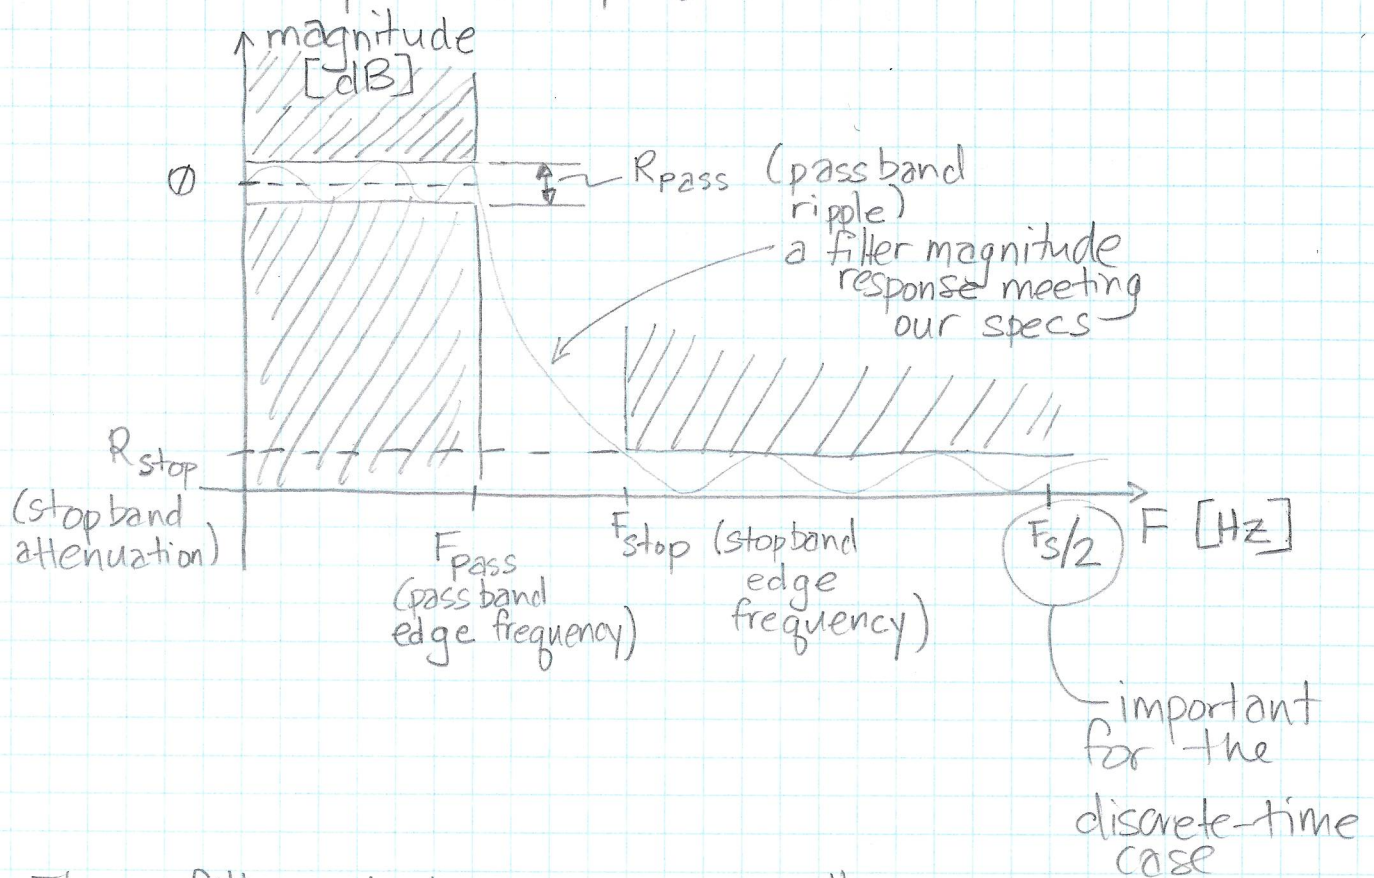 magnitude
[dB]
Ø
RPASS (passband
ripple)
a filter magnitude
response meeting
our specs
Rstop
(stopband
attenuation)
Fpass
(passband
edge frequency)
Fstop (stopband
edge
frequency)
Fs/2
F [Hz]
important
for the
discrete-time
case